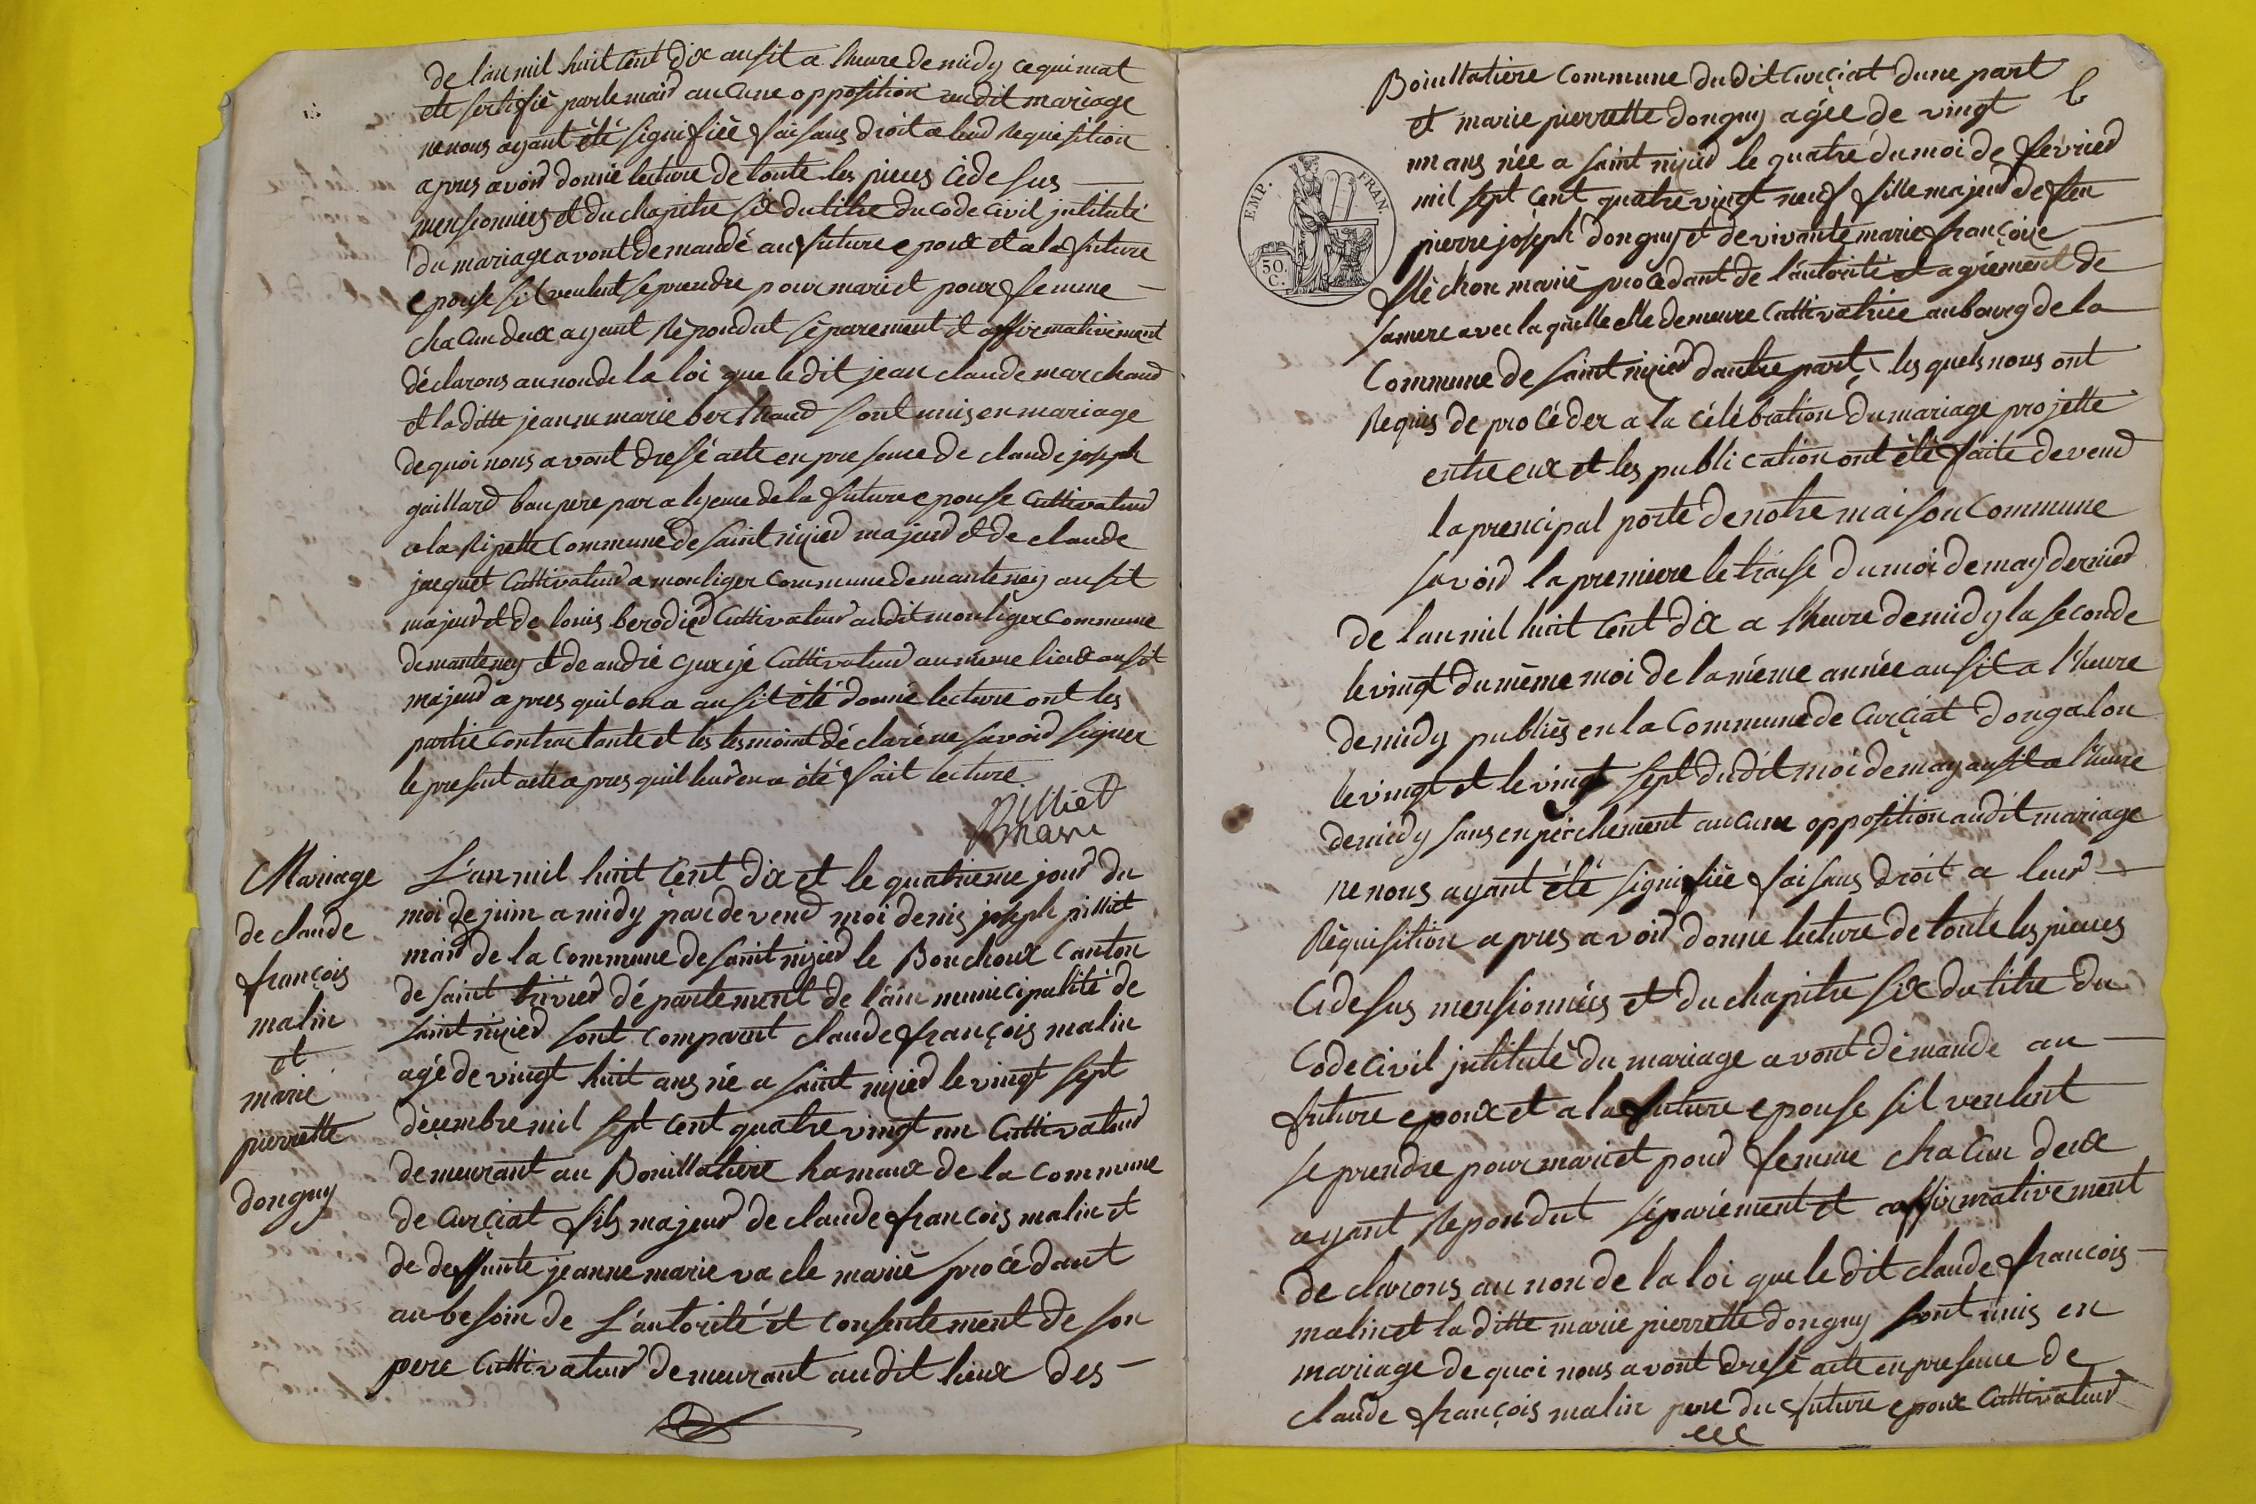 de l'an mil huit cent dix ausit a l'heure de midy ce qui mat
ete sertifié par le maid aucune opposition audit mariage
ne nous ayant été signifiée faisans droit a leud requisition
apres avoid donné lecture de toute les pieces cidesus
mensionnées et du chapitre six du titre du code civil jntitulé
du mariage avont demandé au future epoux et a la future
epouse sil veulent se prendre pour mari et pour femme
chacun deux ayant répondut séparement et affirmativement
déclarons au non de la loi que le dit jean claude marchand
et la ditte jeanne marie berthaud sont unis en mariage
de quoi nous avont dresé acte en presence de claude joseph
gaillard bau pere par alijence de la future epouse cultivateud
a la ripette commune de saint nizied majeud et de claude
jacquet cultivateud a monliger commune de manteney ausit
majeud et de louis berodied cultivateur audit monliger commune
de manteney et de andré gurijé cultivateud au même lieux ausit
majeud apres quil on a ausit été donné lecture ont les
partie contractante et les tesmoint déclaré ne savoid signer
le present acte apres quil leud en a été fait lecture
Pilliet
maire
Mariage
de claude
françois
malin
et
marie
pierrette
donguy
L'an mil huit cent dix et le quatrieme jour du
moi de juin a midy par devend moi denis joseph pilliet
maid de la commune de saint nizied le Bouchoux canton
de saint trivied département de l'ain municipalité de
saint nizied sont comparut claude françois malin
agé de vingt huit ans né a saint nizied le vingt sept
décembre mil sept cent quatre vingt un cultivateud
demeurant au Bouillatiere hamaux de la commune
de curçiat fils majeur de claude françois malin et
de deffunte jeanne marie vacle marié procédant
au besoin de L'autorité et consentement de son
pere cultivateur demeurant audit lieux des
Bouillatiere commune dudit curçiat dune part
et marie pierrette donguy agée de vingt
un ans née a saint nizied le quatre du moi de févried
mil sept cent quatre vingt neuf fille majeud de feu
pierre joseph donguy et de vivante marie françoise
fléchon marié procedant de l'autorité et agrément de
sa mere avec la quelle elle demeure cultivatrice au bourg de la
Commune de saint nizied dautre part, les quels nous ont
Requis de procéder a la célébration du mariage projetté
entre eux et les publication ont été faite devend
la prencipal porte de notre maison commune
savoid la premiere le traise du moi de may dernied
de l'an mil huit cent dix a l'heure de midy la seconde
le vingt du même moi de la même année ausit a l'heure
de midy publiés en la commune de curçiat dongalon
le vingt et le vingt sept dudit moi de may ausit a l'heure
de midy sans enpêchement aucune opposition audit mariage
ne nous ayant été signifiée faisans droit a leud
Réquisition apres avoid donné lecture de toute les pieces
cidesus mensionnées et du chapitre six du titre du
code civil jntitulé du mariage avont demandé au
future epoux et a la future epouse sil veulent
se prendre pour mari et poud femme chacun deux
ayant repondut séparément et affirmativement
declarons au non de la loi que le dit claude françois
malin et la ditte marie pierrette donguy sont unis en
mariage de quoi nous avont dresé acte en presence de
claude françois malin pere du future epoux cultivateud
EMP. FRAN.
50. C.